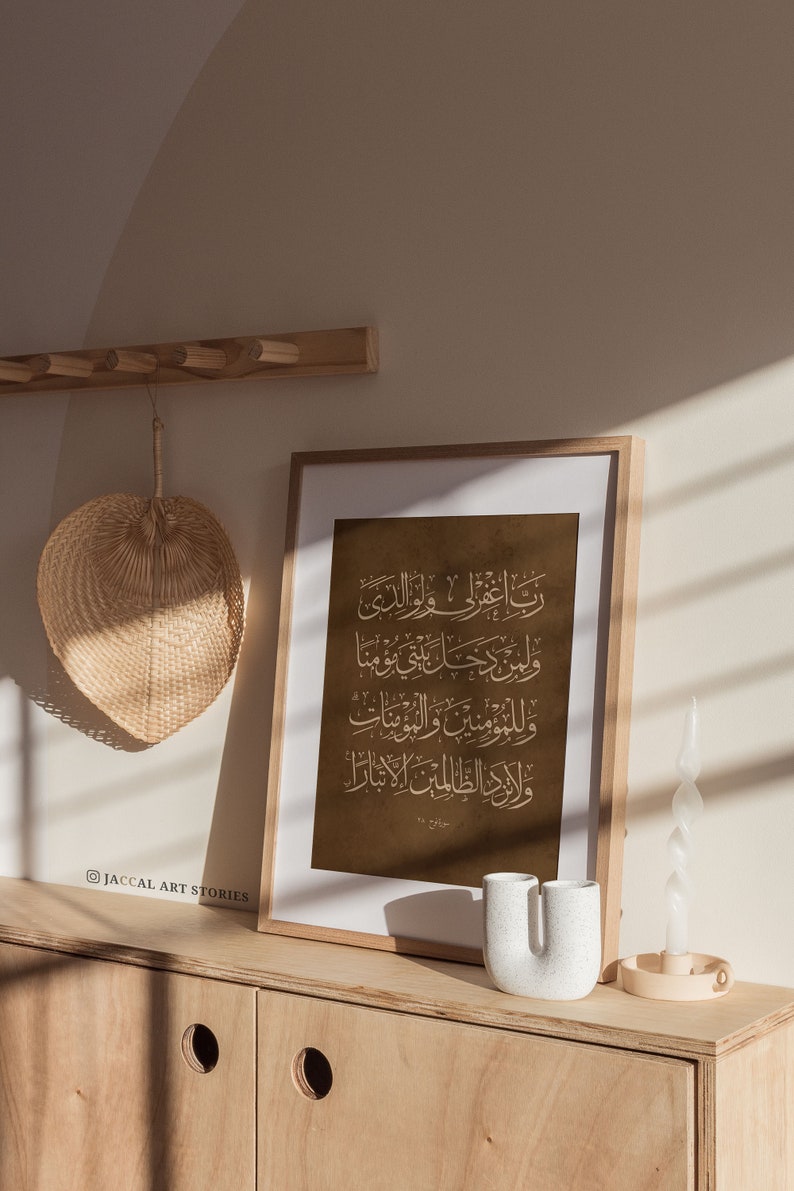 رَبِّ اغْفِرْلِي وَلِوَالِدَيَّ
وَلِمَنْ دَخَلَ بَيْتِيَ مُؤْمِنًا
وَلِلْمُؤْمِنِينَ وَالْمُؤْمِنَاتِ
وَلَا تَزِدِ الظَّالِمِينَ إِلَّا تَبَارًا
سورة نوح ٢٨
JACCAL ART STORIES